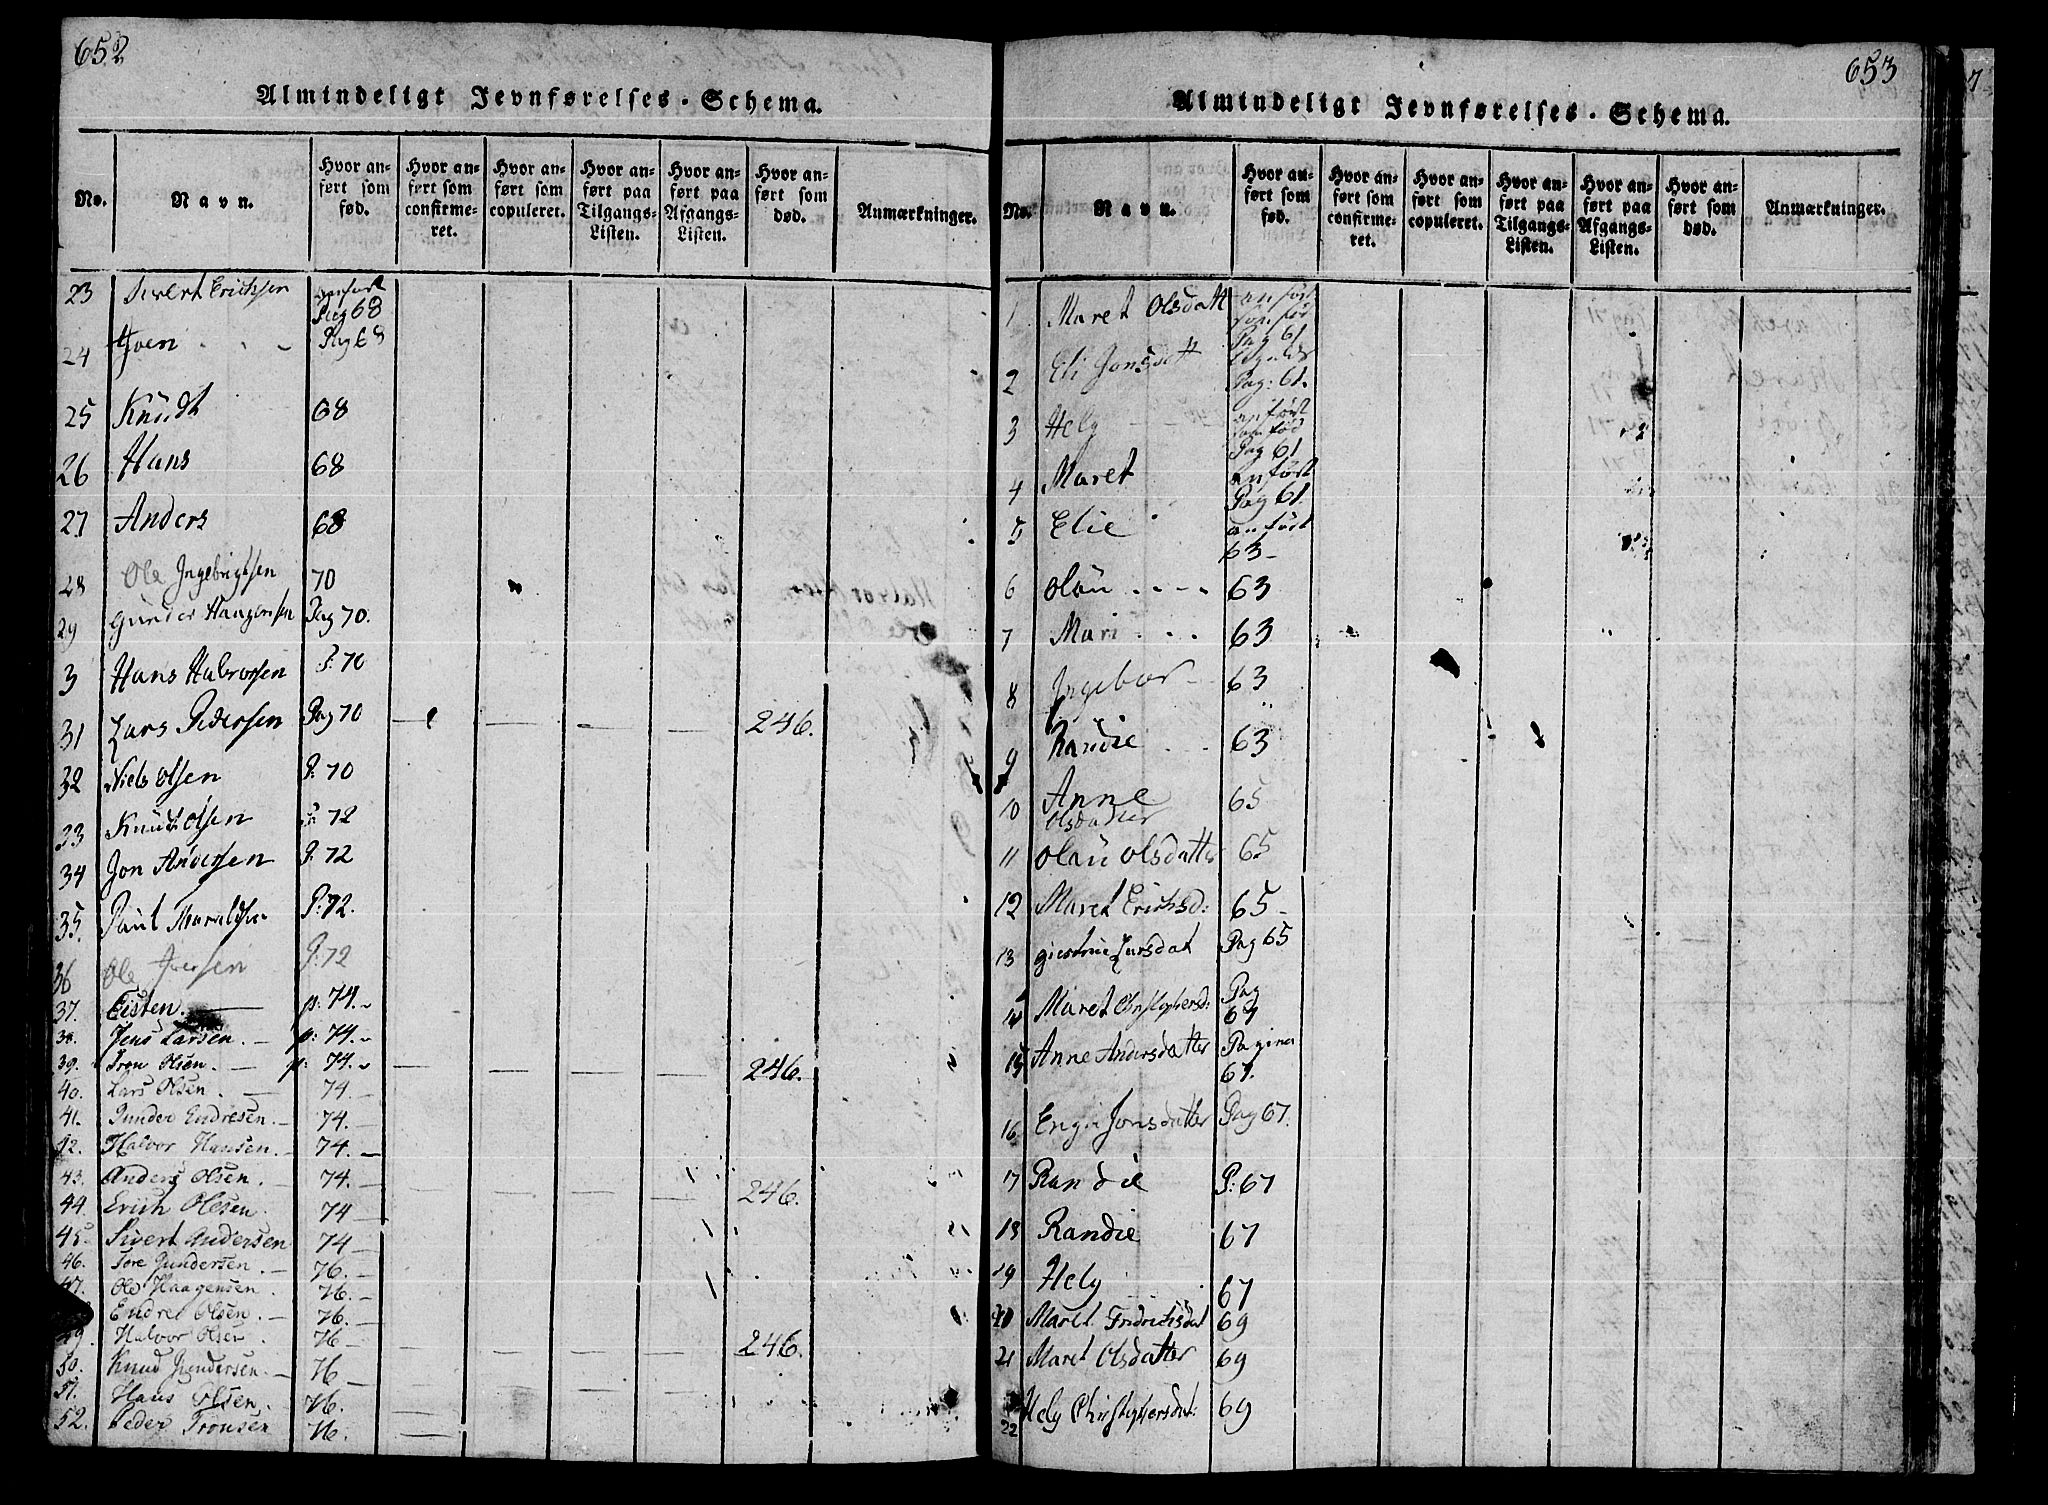 652
Almindeligt Jevnførelses-Schema.
No.
Navn.
Hvor an-
ført som
fød.
Hvor an-
ført som
confirme-
ret.
Hvor an-
ført som
copuleret.
Hvor an-
ført paa
Tilgangs-
Listen.
Hvor an-
ført paa
Afgangs-
Listen.
Hvor an-
ført som
død.
Anmærkninger.
23 Sivert Erichsen anført Pag 68
24 Iven Pag 68
25 Knudt 68
26 Hans 68
27 Anders 68
28 Ole Ingebrigtsen 70
29 Gunder Haagensen Pag 70.
3 Hans Halvorsen P: 70
31 Lars Pedersen Pag 70 — — — — 246.
32 Niels Olsen P: 70
33 Knudt Olsen P: 72
34 Jon Andersen P: 72
35. Paul Haraldsen P: 72.
36 Ole Iversen P: 72
37. Eisten. — p: 74.
38. Jens Larsen. — p: 74.
39. Tron Olsen. — p: 74. — — — — 246.
40. Lars Olsen. — 74. —
41. Gunder Endresen. — 74. —
42. Halvor Hansen. — 74. —
43. Anders Olsen. — 74. — — — — 246.
44. Erich Olesen. 74 —
45 Sivert Andersen 74 —
46. Tore Gundersen. — 76. —
47. Ole Haagensen. 76. —
Endre Olsen. — 76. —
49. Halvor Olsen. 76 — — — — 246.
50. Knud Gundersen. — 76 —
51. Hans Olsen. 76.
52. Peder Tronsen 76. —
653
Almindeligt Jevnførelses-Schema.
No.
Navn.
Hvor an-
ført som
fød.
Hvor an-
ført som
confirme-
ret.
Hvor an-
ført som
copuleret.
Hvor an-
ført paa
Tilgangs-
Listen.
Hvor an-
ført paa
Afgangs-
Listen.
Hvor an-
ført som
død.
Anmærkninger.
1 Maret Olsdatt anført som fød Pag 61
2 Eli Jonsdatt Pag: 61.
3 Hely anført som fød Pag 61
4 Maret anført Pag 61.
5 Elie anført 63 —
6 Olau 63
7 Mari 63
8 Ingebor 63
9 Randie 63
10 Anne Olsdatter 65
11 Olau Olsdatter 65
12 Maret Erichsd: 65 —
13 Giertrue Larsdat Pag 65
14 Maret Christophersd: Pag 67
15 Anne Andersdatter Pagina 67.
16 Enge Jonsdatter Pag 67.
17 Randie P: 67
18 Randie 67
19 Hely 67
20 Maret Fridrichsdat 69
21 Maret Olsdatter 69
22 Hely Christophersdat: 69